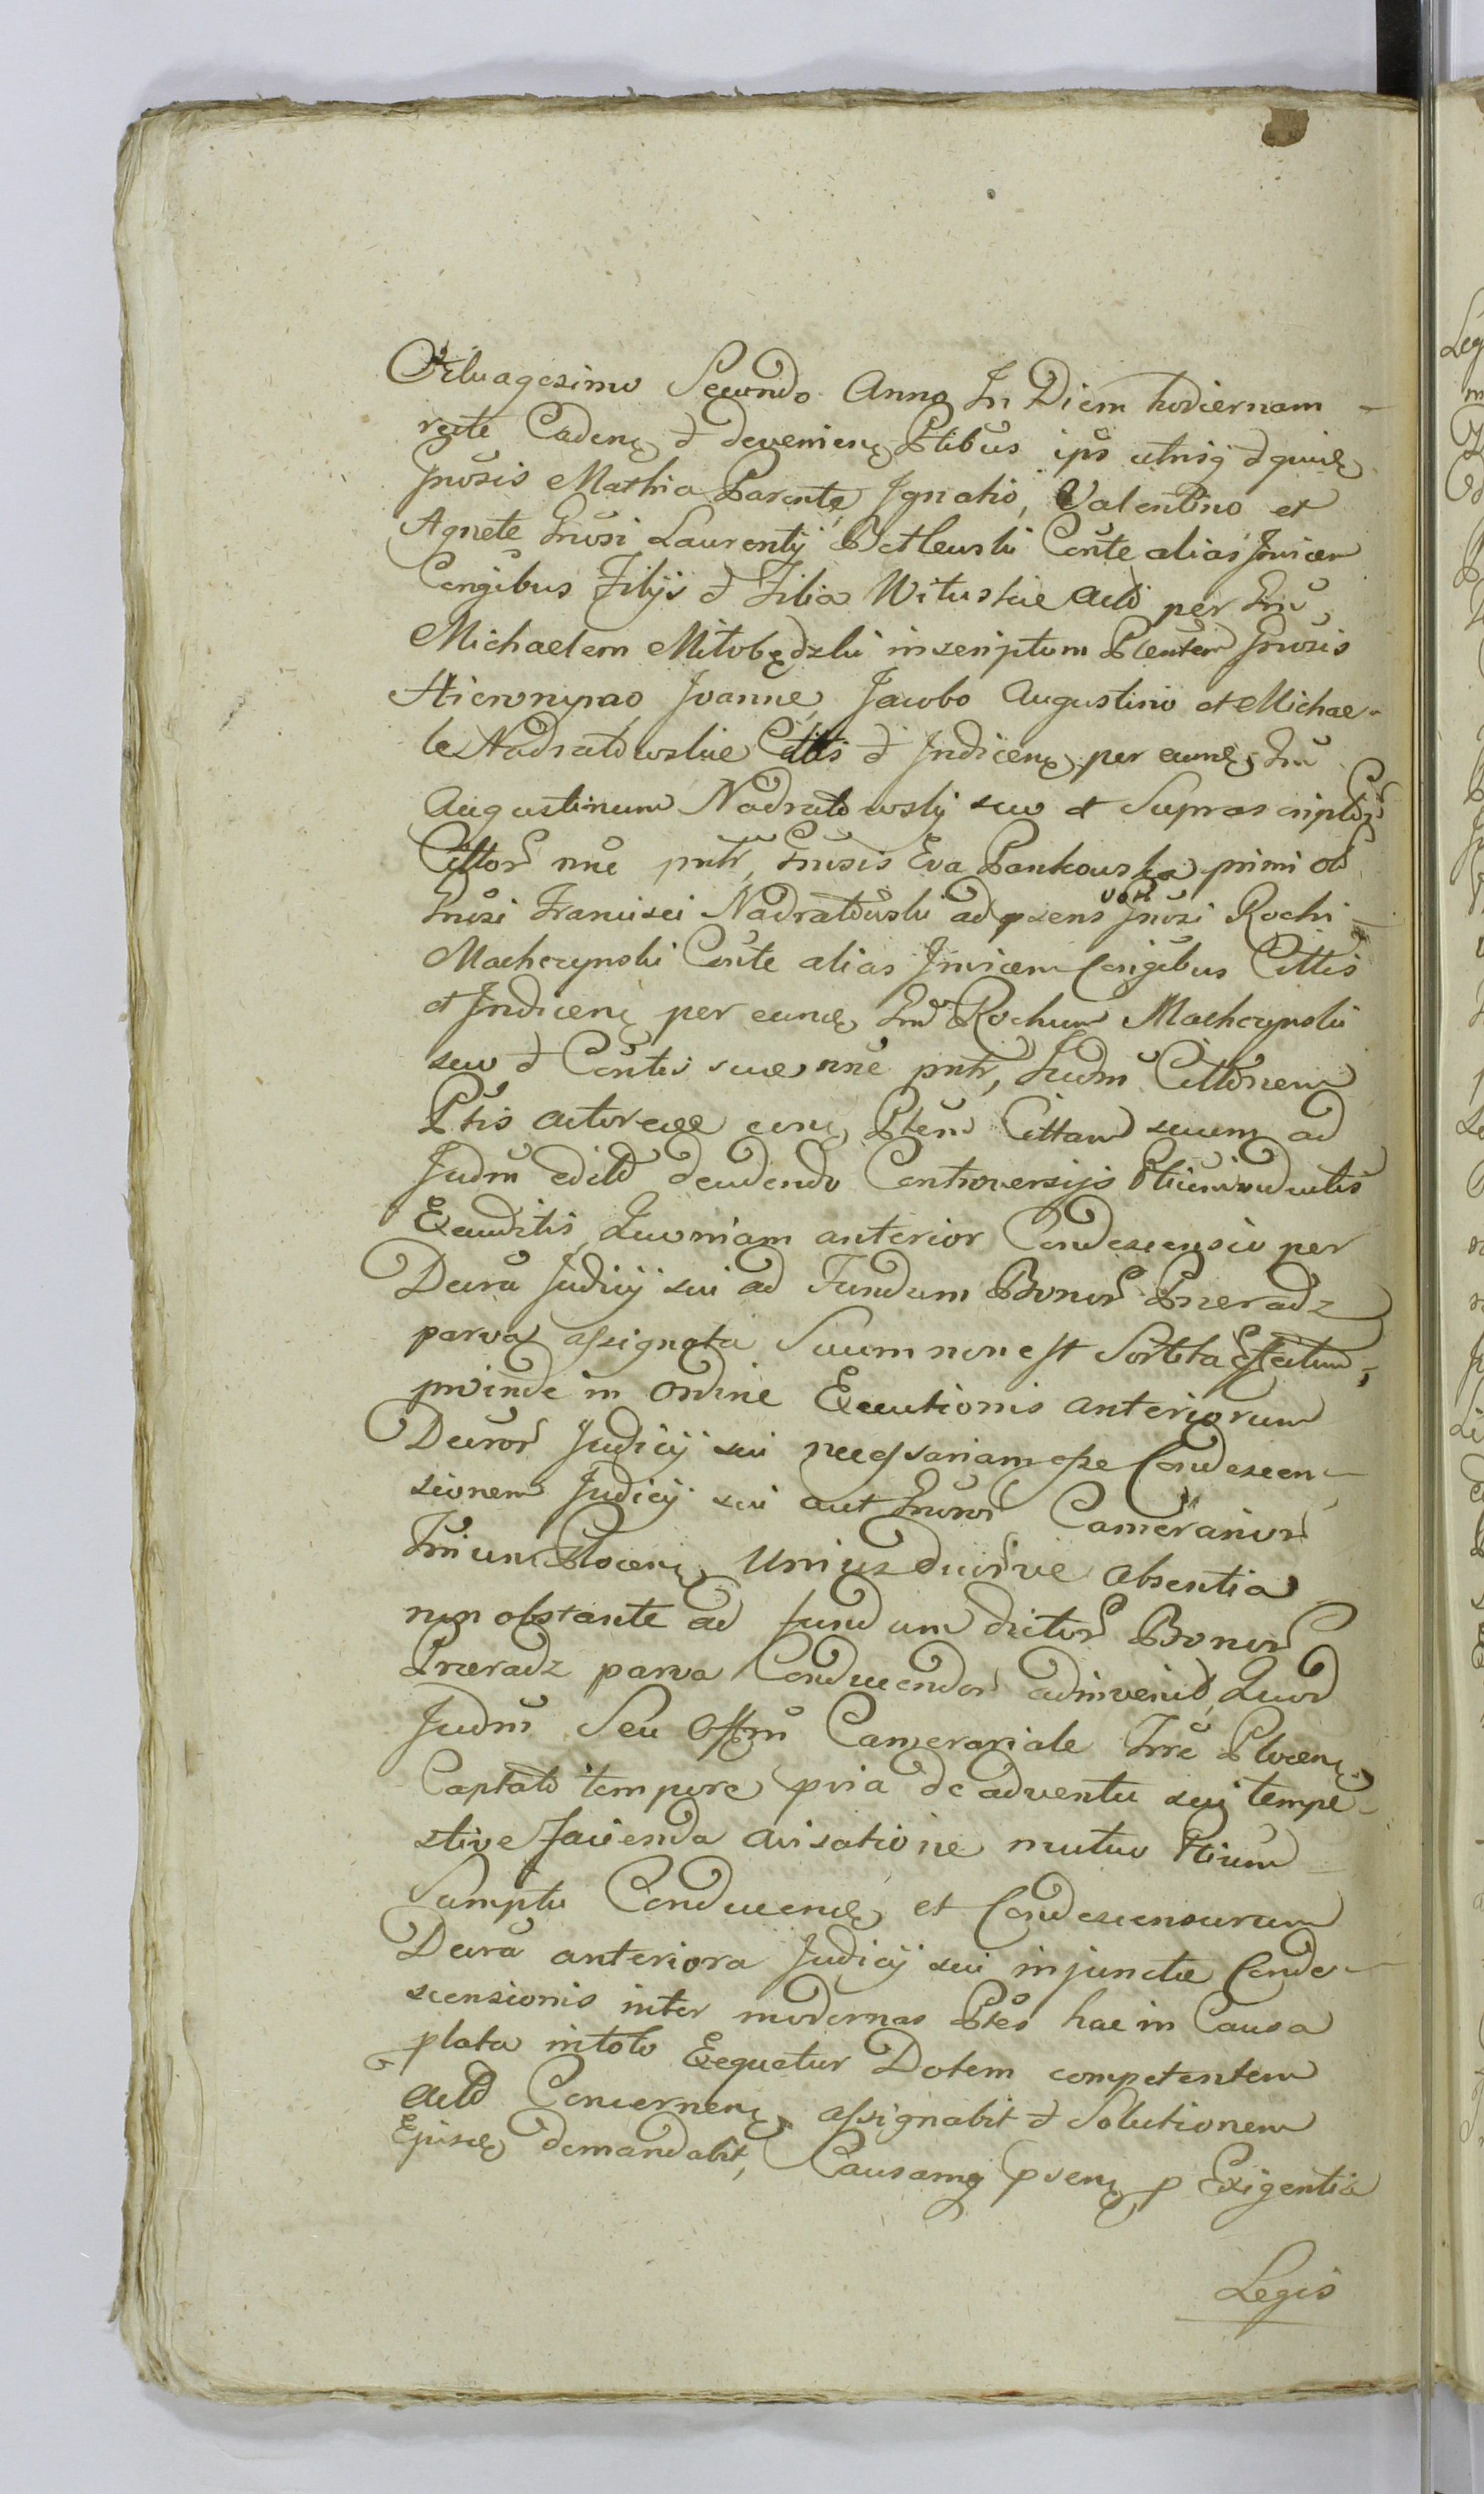 Octuagesimo Secundo Anno In Diem hodiernam
recte Caden̄ & devenien̄ Ptibus ip̄s utrisq̨ & quidē
Gnōsis Mathia Parente, Ignatio, Valentino et
Agnete Gnōsi Laurentij Betlewski Cōnte alias Invicem
Conḡibus Filijs & Filia Wituskie Actō per Gn̄
Michaelem Miłobędzki inscriptum Plentem Gnōsis
Hieronymo Joanne, Jacobo Augustino et Michae-
le Nadratowskie Cittis & Indicen̄ per eund̄ Gn̄
Augustinum Nadratowskij suo et Suprascriptor̄
Cittor̄ nn̄e pnt̄r, Gnōsis Eva Pankowska primi olī
Gnōsi Francisci Nadratowski ad p̄sens vōti Gnōsi Rochi
Machczynski Cōnte alias Invicem Conḡibus Cittis
et Indicen̄ per eund̄ Gn̄ Rochum Machczynski
suo & Cōntis suæ nn̄e pnt̄r, Judm̄ Cittōnem
Ptis actoreæ con̄ Ptem Cittam suum ad
Judm̄ editō deudendo Controversijs Ptium induētis
Exauditis, Quoniam anterior Condescensio per
Decr̄a Judicij sui ad Fundum Bonor̄ Przeradz
parva assignata Suum non est Sortita Effectum,
proinde in ordine Executionis anteriorum
Decror̄ Judicij sui necessariam esse Condescen-
sionem Judicij sui aut Gnōror̄ Camerarior̄
Trium Plocen̄, Unius duor̄ve absentia
non obstante ad fundum dictor̄ Bonor̄
Przeradz parva Conducendor̄ adinvenit, Quod
Judm̄ Seu Offm̄ Camerariale Trr̄e Plocen̄
Captato tempore, pvia de adventu sui tempe-
stive facienda avisatione mutuo Ptium
Sumptu Conducend̄ et Condescensurum
Decr̄a anteriora Judicij sui injunctæ Conde-
scensionis inter modernas Ptes hac in Causa
plata in toto Exequetur Dotem competentem
Actō Concernen̄, assignabit & Solutionem
Ejusd̄ demandabit, Causamq̨ p̄sen̄ p Exigentia
Legis